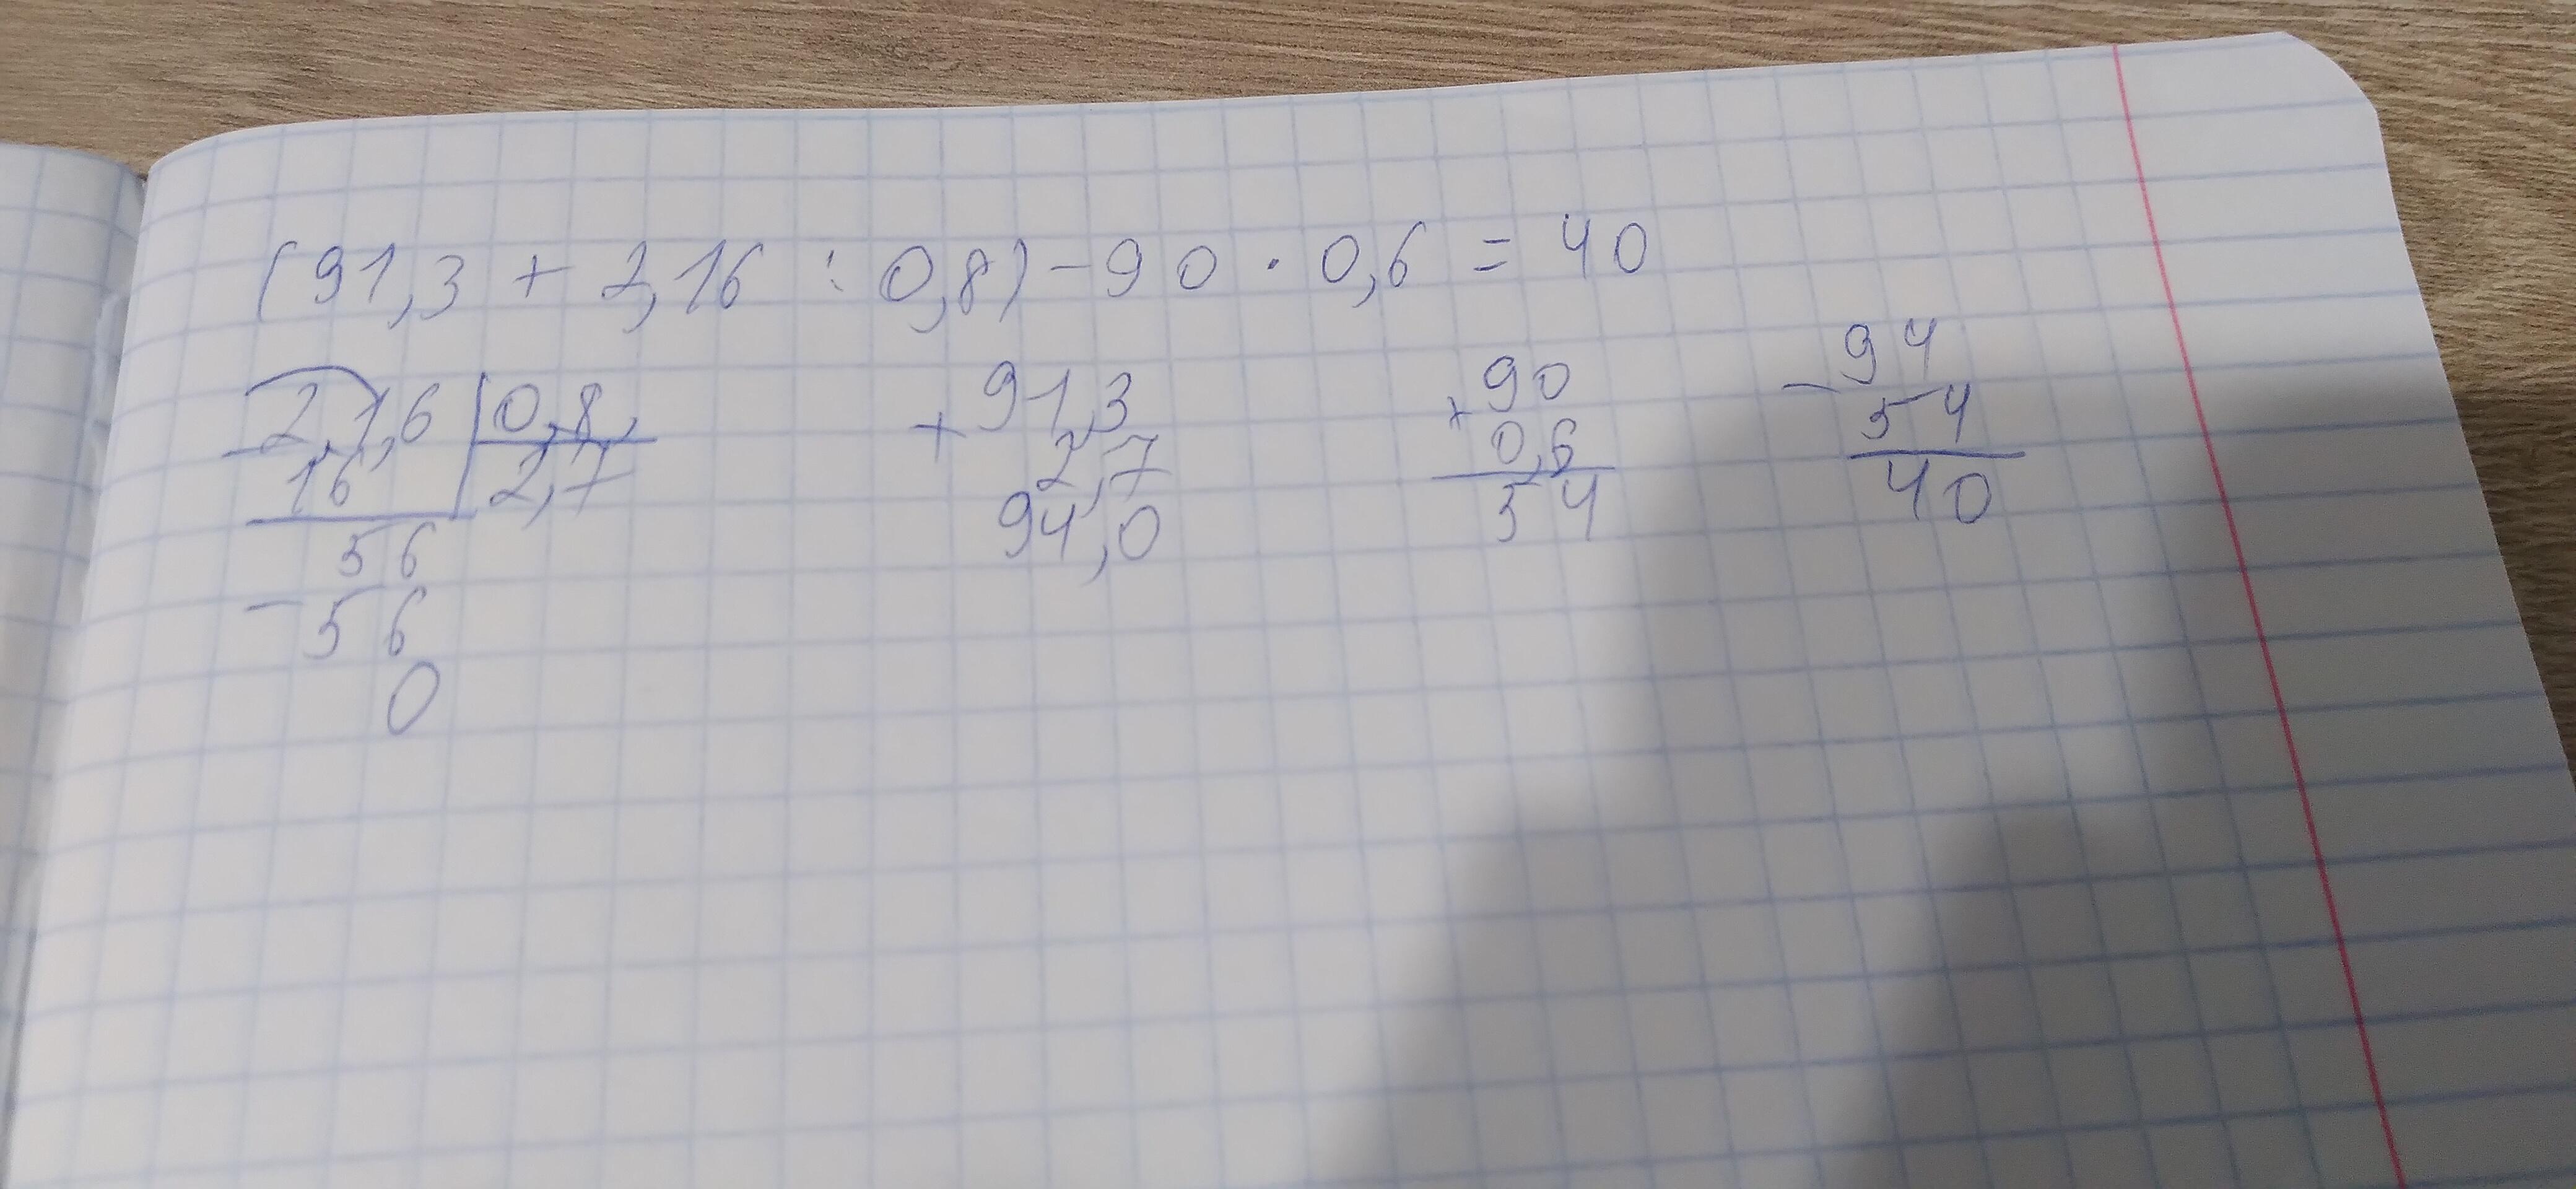 (91,3 + 2,16 : 0,8) - 90 · 0,6 = 40
- 2,1,6 | 0,8,
16 2,7
56
- 56
0
+ 91,3
2,7
94,0
× 90
0,6
54
- 94
54
40